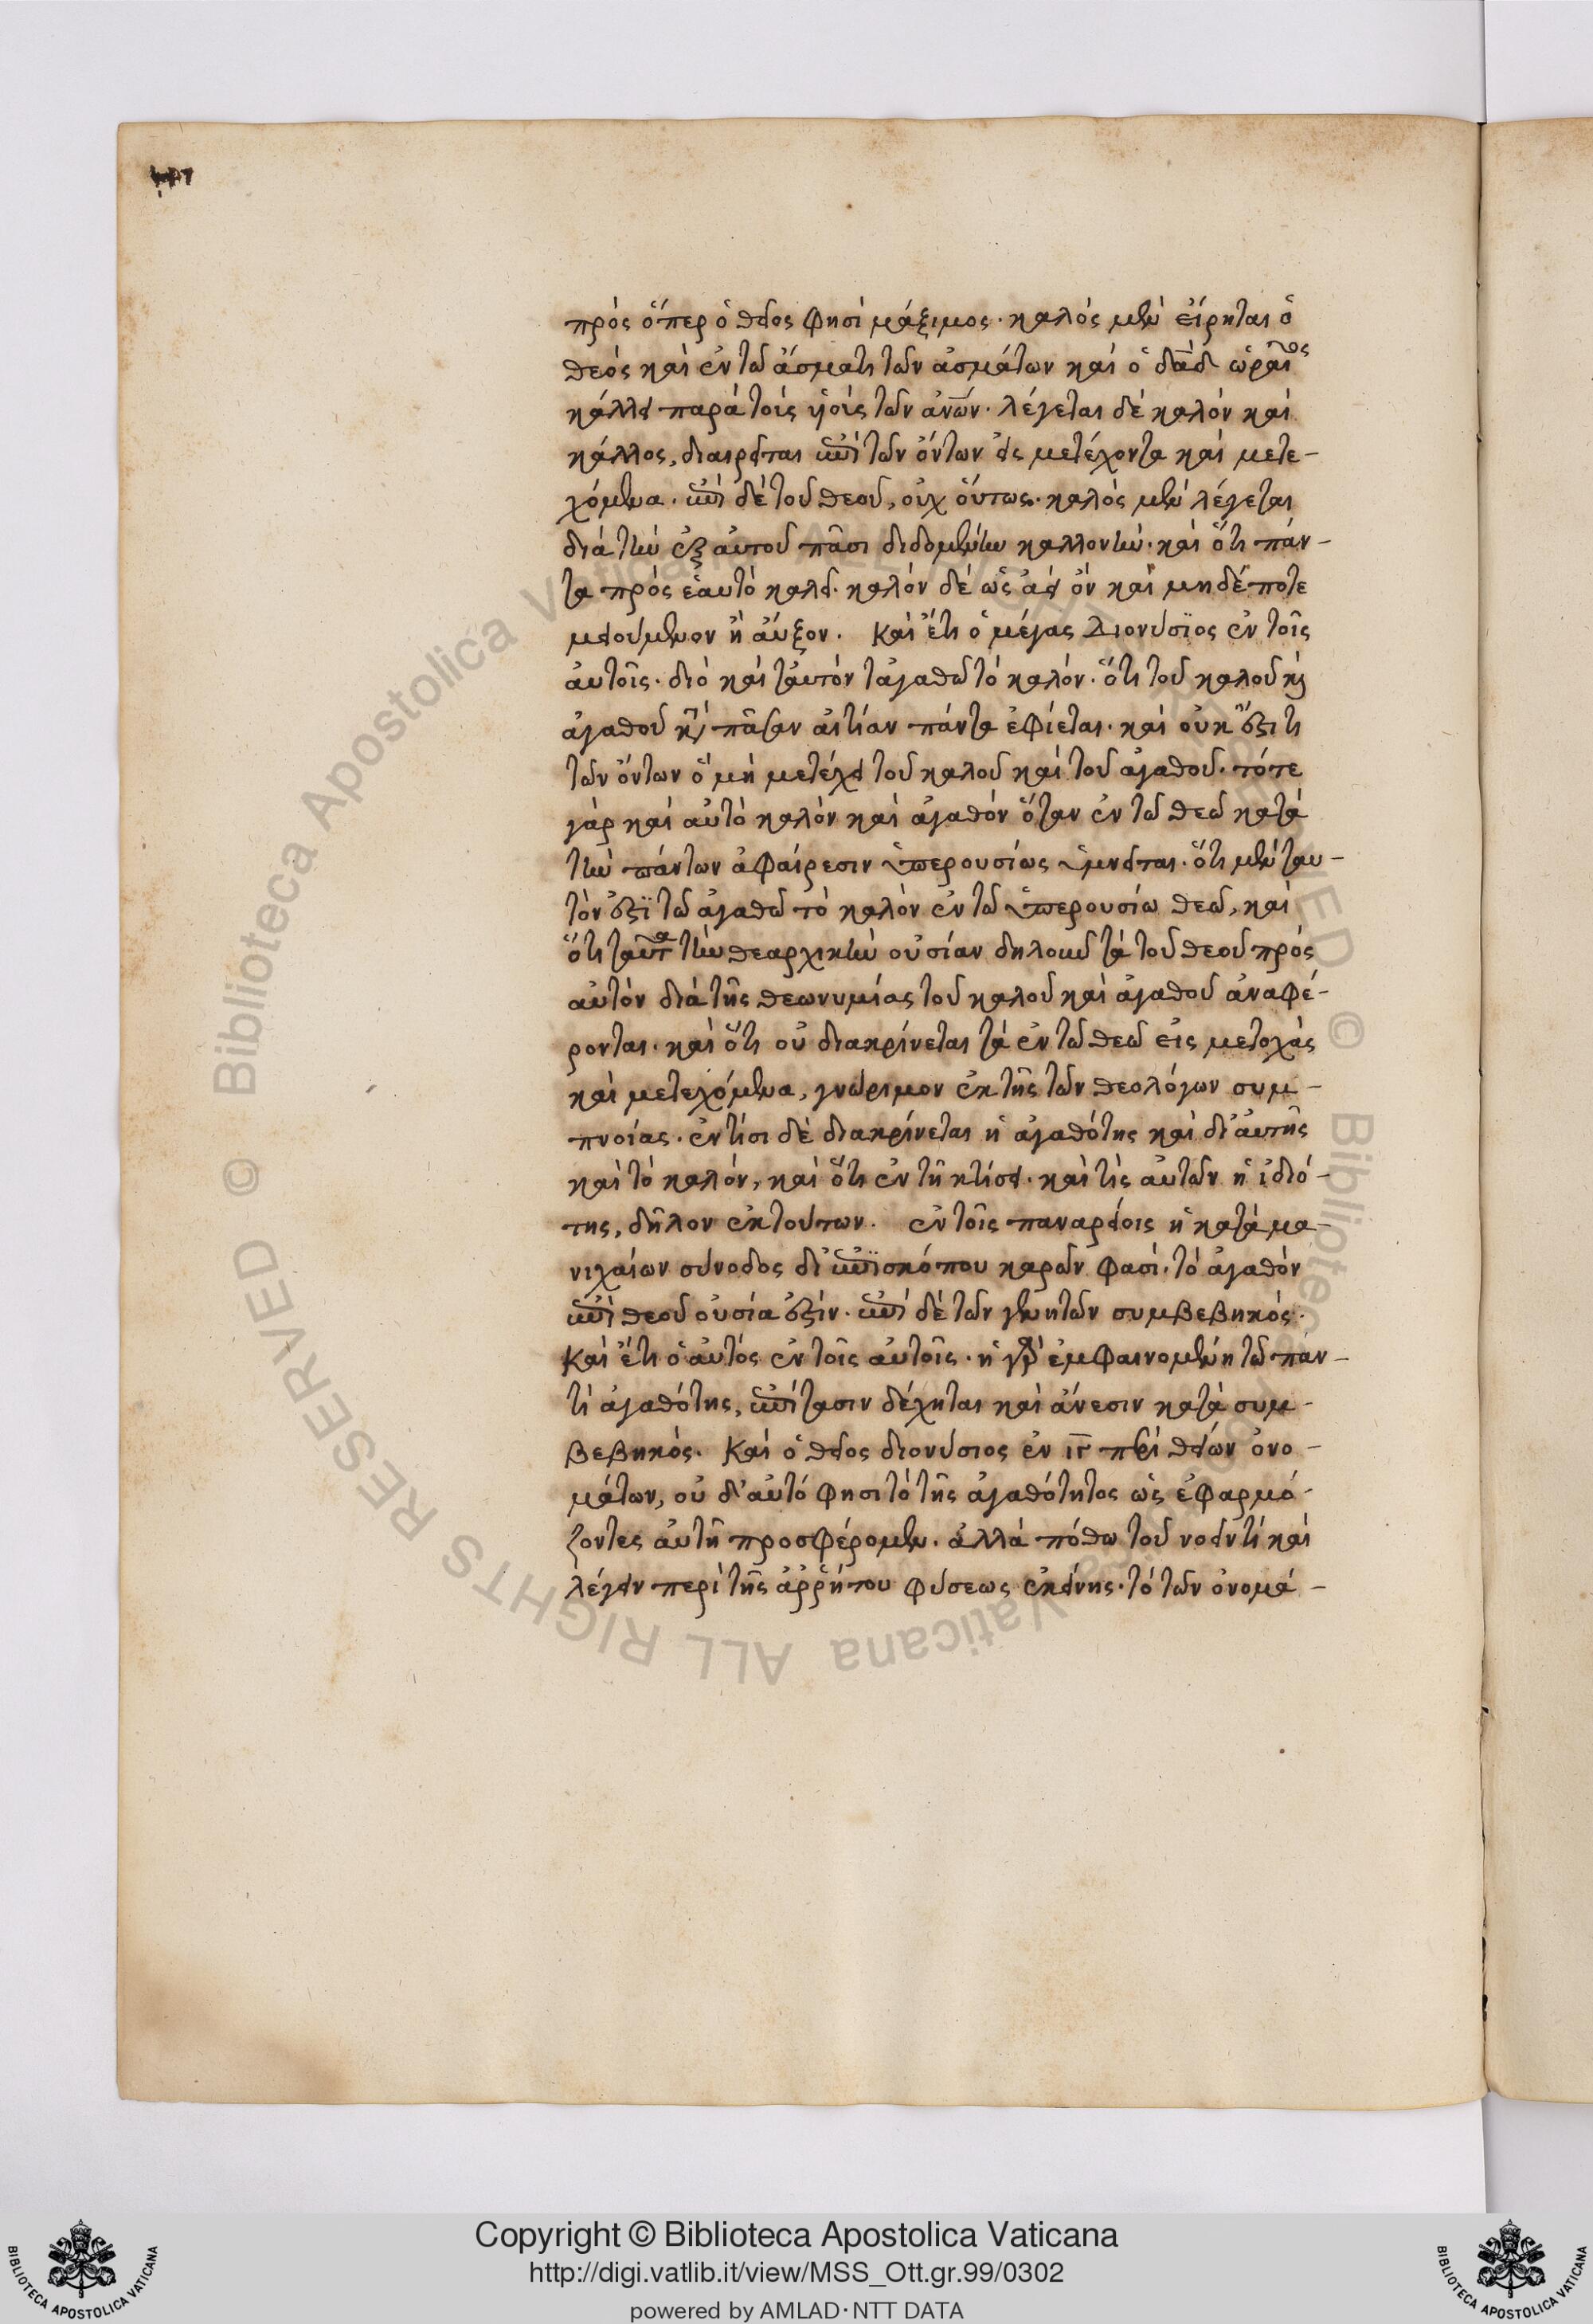 πρὸς ὅπερ ὁ θεῖος φησὶ μάξιμος. καλὸς μὲν εἴρηται ὁ
θεὸς καὶ ἐν τῶ ἄσματι τῶν ἀσμάτων καὶ ὁ δᾱδ ὡραῖος
κάλλει παρὰ τοὺς υἱοὺς τῶν ἀν̅ων. λέγεται δὲ καλὸν καὶ
κάλλος, διαιρεῖται ἐπὶ τῶν ὄντων εἰς μετέχοντα καὶ μετε-
χόμενα. ἐπὶ δὲ τοῦ θεοῦ, οὐχ οὕτως. καλὸς μὲν λέγεται
διὰ τὴν ἐξ αὐτοῦ πᾶσι διδομένην καλλονὴν. καὶ ὅτι πάν-
τα πρὸς ἑαυτὸ καλεῖ. καλὸν δὲ ὡς ἀεὶ ὂν καὶ μηδέποτε
μειούμενον ἢ αὔξον. Καὶ ἔτι ὁ μέγας Διονύσϊος ἐν τοῖς
αὐτοῖς. διὸ καὶ ταὐτόν τἀγαθῶ τὸ καλόν. ὅτι τοῦ καλοῦ κ
ἀγαθοῦ κατὰ πᾶσαν αἰτίαν πάντα ἐφίεται. καὶ οὐκ ἔστι τι
τῶν ὄντων ὃ μὴ μετέχει τοῦ καλοῦ καὶ τοῦ ἀγαθοῦ. τότε
γὰρ καὶ αὐτὸ καλὸν καὶ ἀγαθόν ὅταν ἐν τῶ θεῶ κατὰ
τὴν πάντων ἀφαίρεσιν ὑπερουσίως ὑμνεῖται. ὅτι μὲν ταυ-
τόν ἐστϊ τῶ ἀγαθῶ τὸ καλὸν ἐν τῶ ὑπερουσίω θεῶ, καὶ
ὅτι ταῦτα τὴν θεαρχικὴν οὐσίαν δηλοῦν τὰ τοῦ θεοῦ πρὸς
αὐτόν διὰ τῆς θεωνυμίας τοῦ καλοῦ καὶ ἀγαθοῦ ἀναφέ-
ρονται. καὶ ὅτι οὐ διακρίνεται τὰ ἐν τῶ θεῶ εἰς μετοχὰς
καὶ μετεχόμενα, γνώριμον ἐκ τῆς τῶν θεολόγων συμ-
πνοίας. ἐν τίσι δὲ διακρίνεται ἡ ἀγαθότης καὶ δι' αὐτῆς
καὶ τὸ καλόν, καὶ ὅτι ἐν τῆ κτίσει. καὶ τίς αὐτῶν ἡ ἰδιό-
της, δῆλον ἐκ τούτων. ἐν τοῖς παναρείοις ἡ κατὰ μα-
νιχαίων σύνοδος δι' ἐπϊσκόπου καρῶν φασί. τὸ ἀγαθὸν
ἐπὶ θεοῦ οὐσία ἐστίν. ἐπὶ δὲ τῶν γενητῶν συμβεβηκός.
Καὶ ἔτι ὁ αὐτὸς ἐν τοῖς αὐτοῖς. ἡ γὰρ ἐμφαινομένη τῶ παν-
τὶ ἀγαθότης, ἐπίτασιν δέχηται καὶ ἄνεσιν κατὰ συμ-
βεβηκός. Καὶ ὁ θεῖος διονύσιος ἐν ιγ̅ περὶ θείων ὀνο-
μάτων, οὐ δ' αὐτό φησι τὸ τῆς ἀγαθότητος ὡς ἐφαρμό-
ζοντες αὐτῆ προσφέρομεν. ἀλλὰ πόθω τοῦ νοεῖν τὶ καὶ
λέγειν περὶ τῆς ἀῤῥήτου φύσεως ἐκείνης. τὸ τῶν ὀνομά-
Copyright © Biblioteca Apostolica Vaticana
http://digi.vatlib.it/view/MSS_Ott.gr.99/0302
powered by AMLAD·NTT DATA
BIBLIOTECA APOSTOLICA VATICANA
BIBLIOTECA APOSTOLICA VATICANA
Biblioteca Apostolica Vaticana ALL RIGHTS RESERVED ©
Biblioteca Apostolica Vaticana ALL RIGHTS RESERVED ©